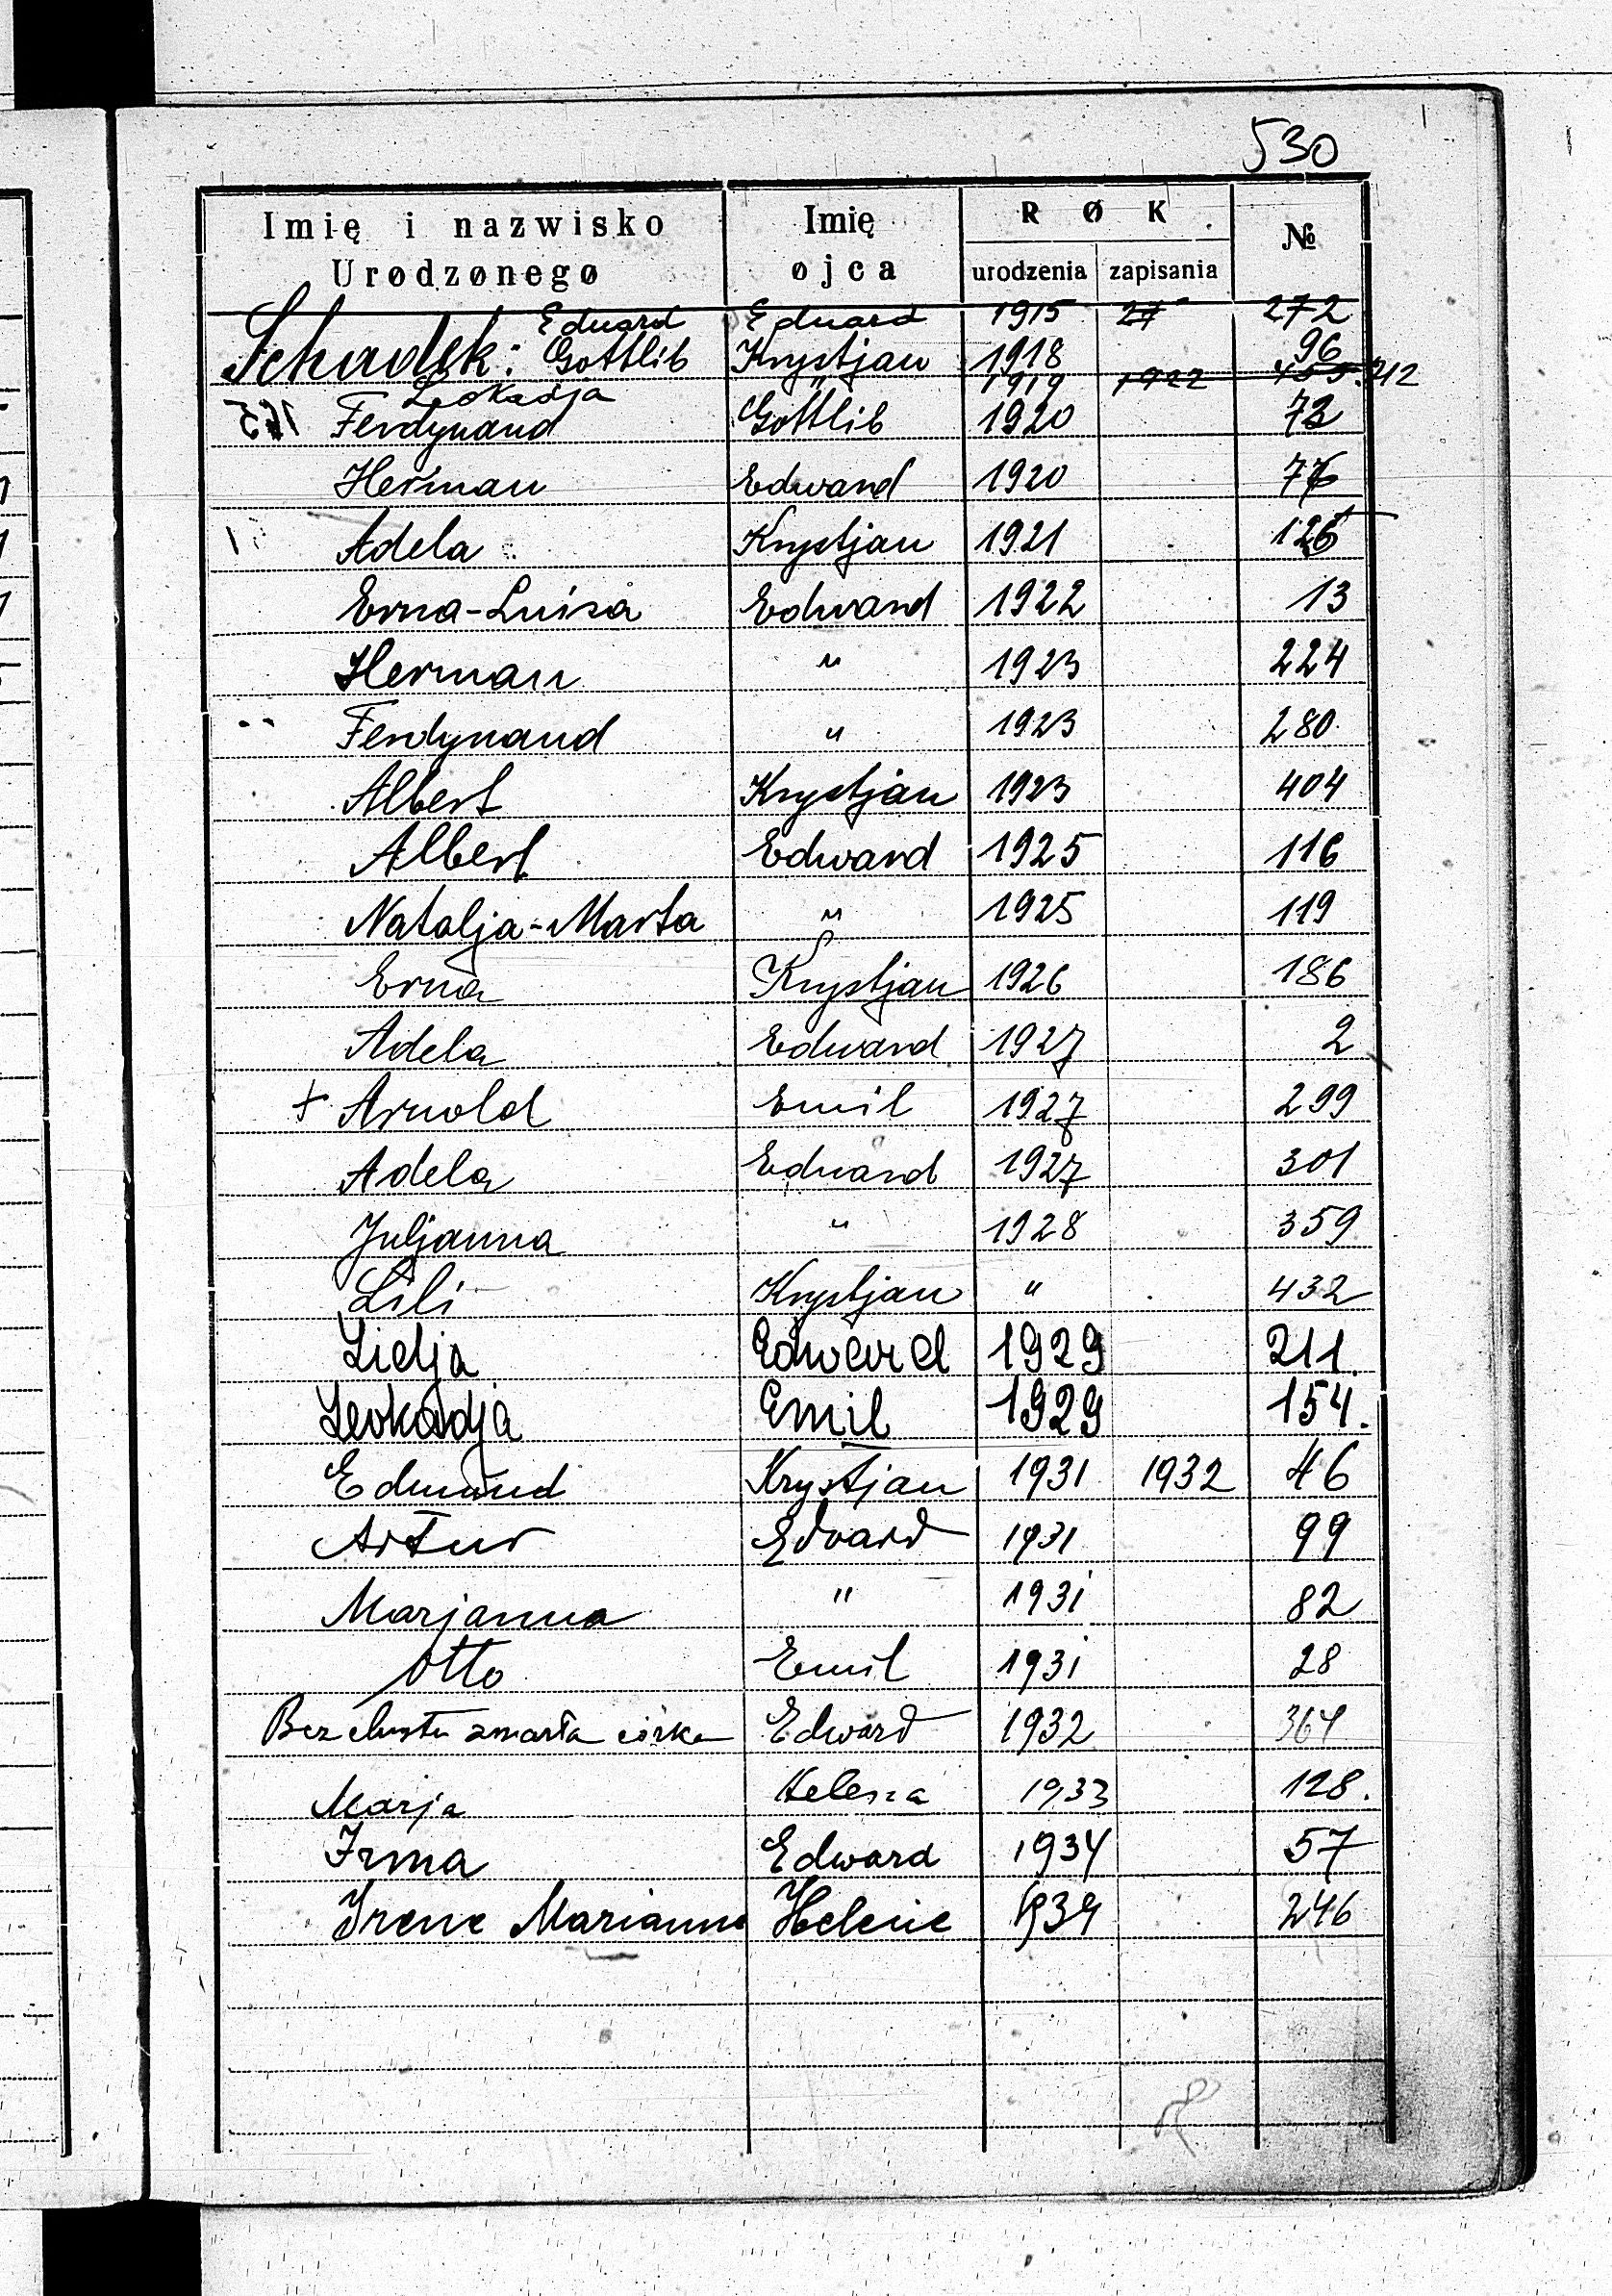 530
Imię i nazwisko Urodzonego Imię ojca ROK urodzenia zapisania №
Eduard Eduard 1915 27 272
Schadek: Gottlib Krystjan 1918 96
Leokadja " 1919 1922 455. 212
Ferdynand Gottlib 1920 73
Herman Edward 1920 76
Adela Krystjan 1921 126
Erna-Luiza Edward 1922 13
Herman " 1923 224
Ferdynand " 1923 280
Albert Krystjan 1923 404
Albert Edward 1925 116
Natalja-Marta " 1925 119
Erna Krystjan 1926 186
Adela Edward 1927 2
+ Arnold Emil 1927 299
Adela Edward 1927 301
Juljanna " 1928 359
Lili Krystjan " 432
Lidja Edward 1929 211
Leokadja Emil 1929 154.
Edmund Krystjan 1931 1932 46
Artur Edvard 1931 99
Marjanna " 1931 82
Otto Emil 1931 28
Bez chrztu zmarła córka Edward 1932 364
Marja Helena 1933 128.
Irma Edward 1934 57
Irene Marianna Helene 1939 246